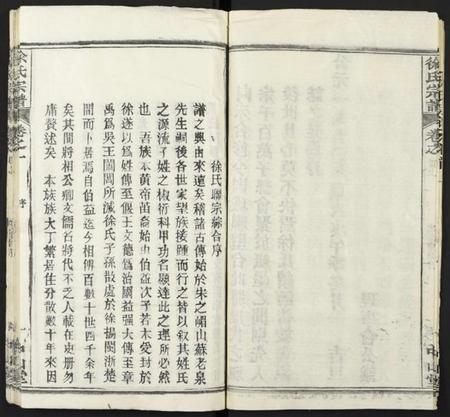 徐氏宗譜
卷之首
中山堂
徐氏聯宗綜合序
譜之興由來遠矣稽諸古傳始於朱之嵋山蘇老泉
先生嗣後各世家望族接踵而行之皆以叙其姓氏
之源流子姓之椒衍科甲功名顯達此之理所必然
也 吾族本黃帝苗裔始由伯益次子若木受封於
徐遂以爲姓傳至偃王文德爲治國益强大傳至章
禹爲吳王闔閭所滅徐氏子孫散處於徐揚閩浙楚
間而卜居焉自伯益迄今相傳百數十世四千余年
矣其間將相公卿文儒名將代不乏人載在史册勿
庸贅述矣 本族族大丁繁居住分散數十年來因
徐氏宗譜
卷之
序